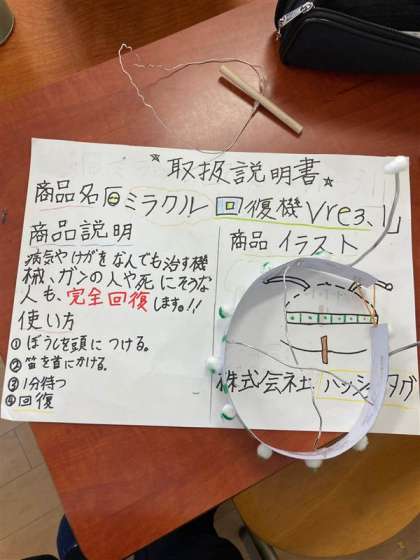 ★取扱説明書★
商品名「ミラクル回復機Vre3、1」
商品説明
病気やけがをなんでも治す機
械、ガンの人や死にそうな
人も、完全回復します。!!
使い方
①ぼうしを頭につける。
②笛を首にかける。
③1分待つ
④回復
商品イラスト
株式会社ハッシュタグ